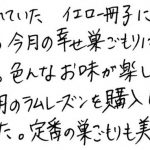 れていた イエロー冊子に
今月の幸せ巣ごもりに
。色んなお味が楽し
月のラムレーズンを購入
た。定番の巣ごもりも美